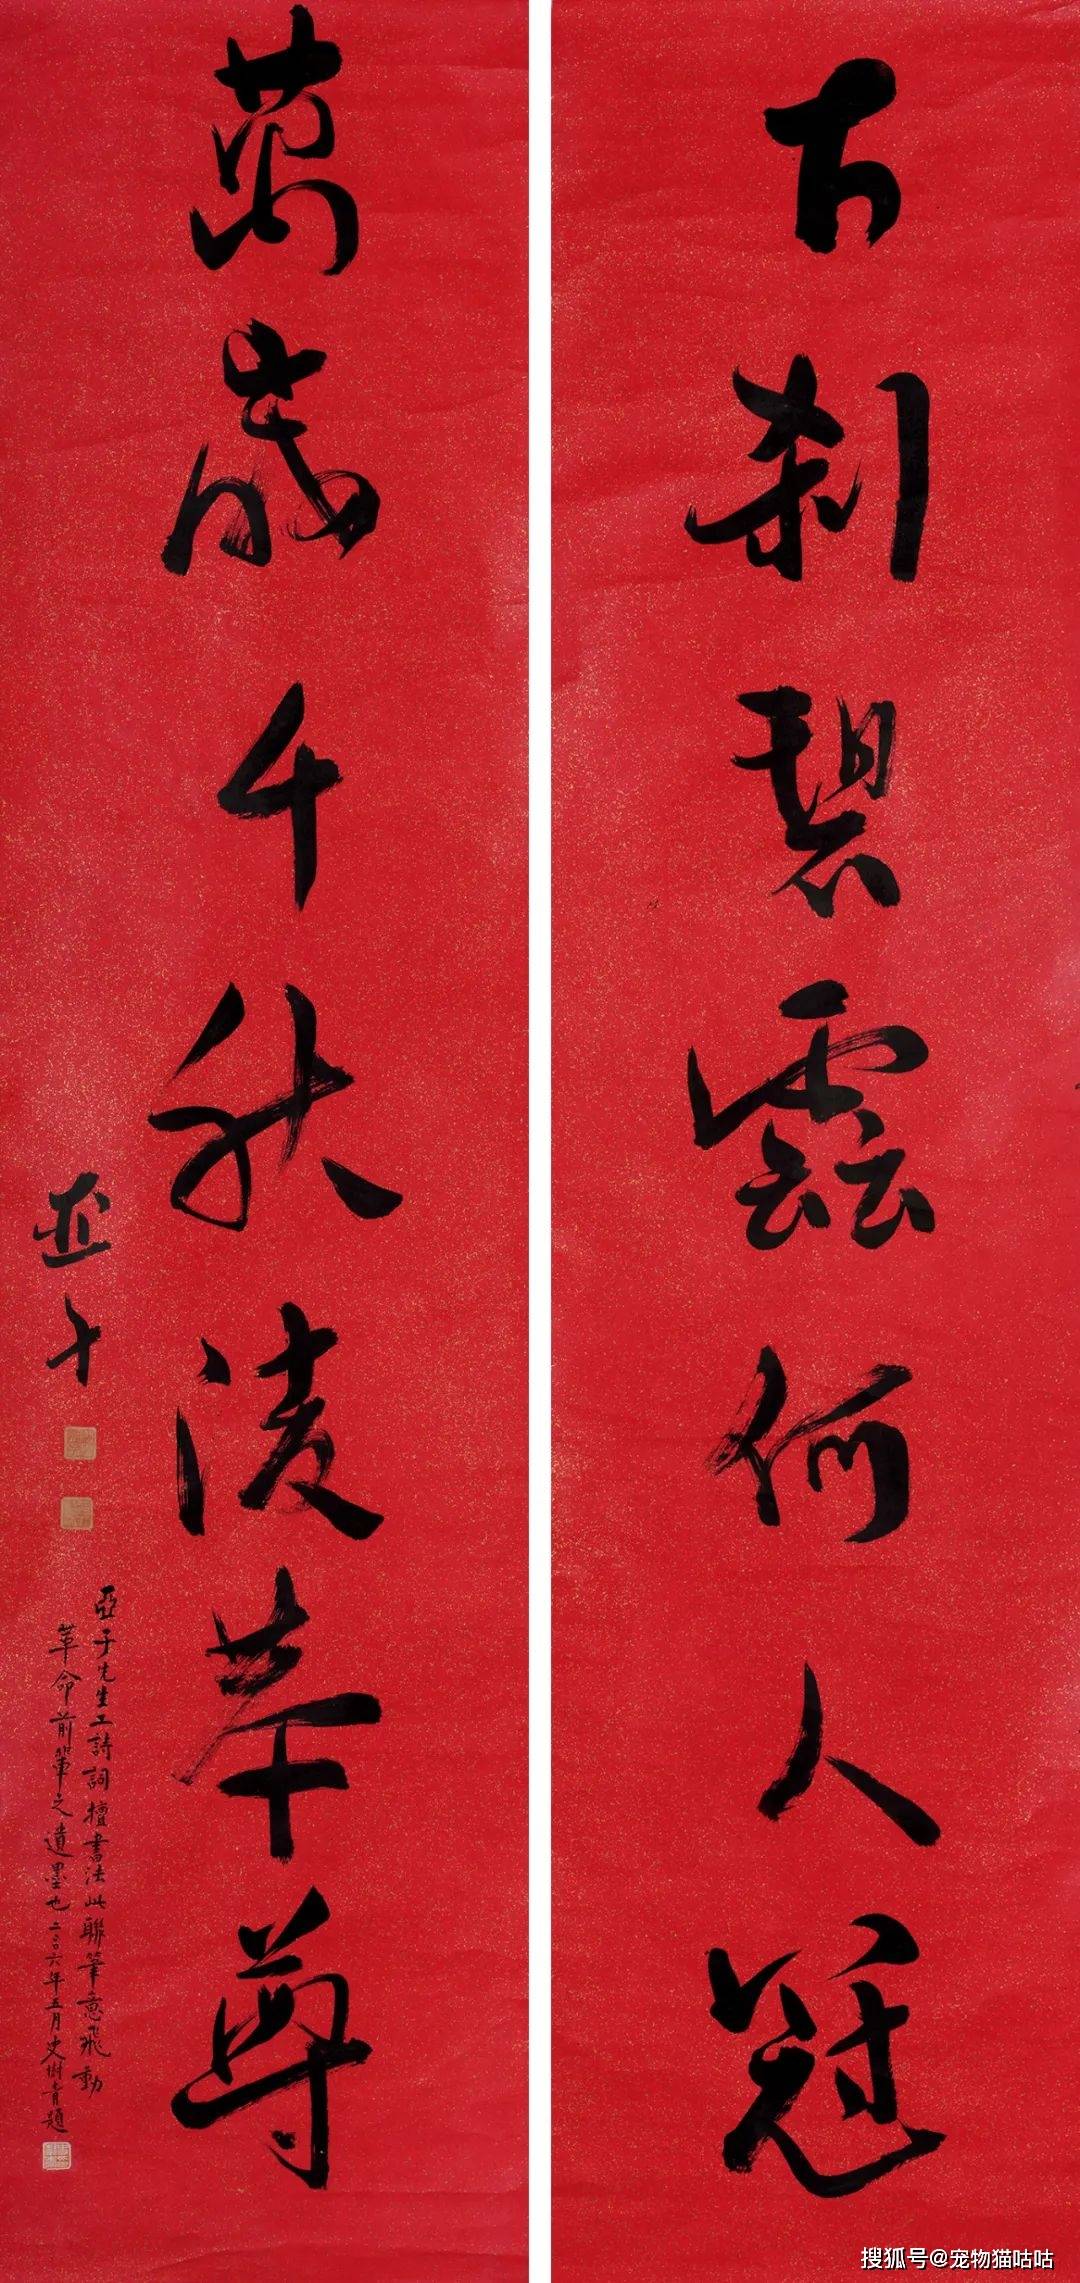 古刹碧雲何人冠
萬歲千秋淩華尊
亞子
亞子先生工詩詞擅書法此聯筆意飛動
革命前輩之遺墨也二〇〇六年五月史樹青題
搜狐号@宠物猫咕咕